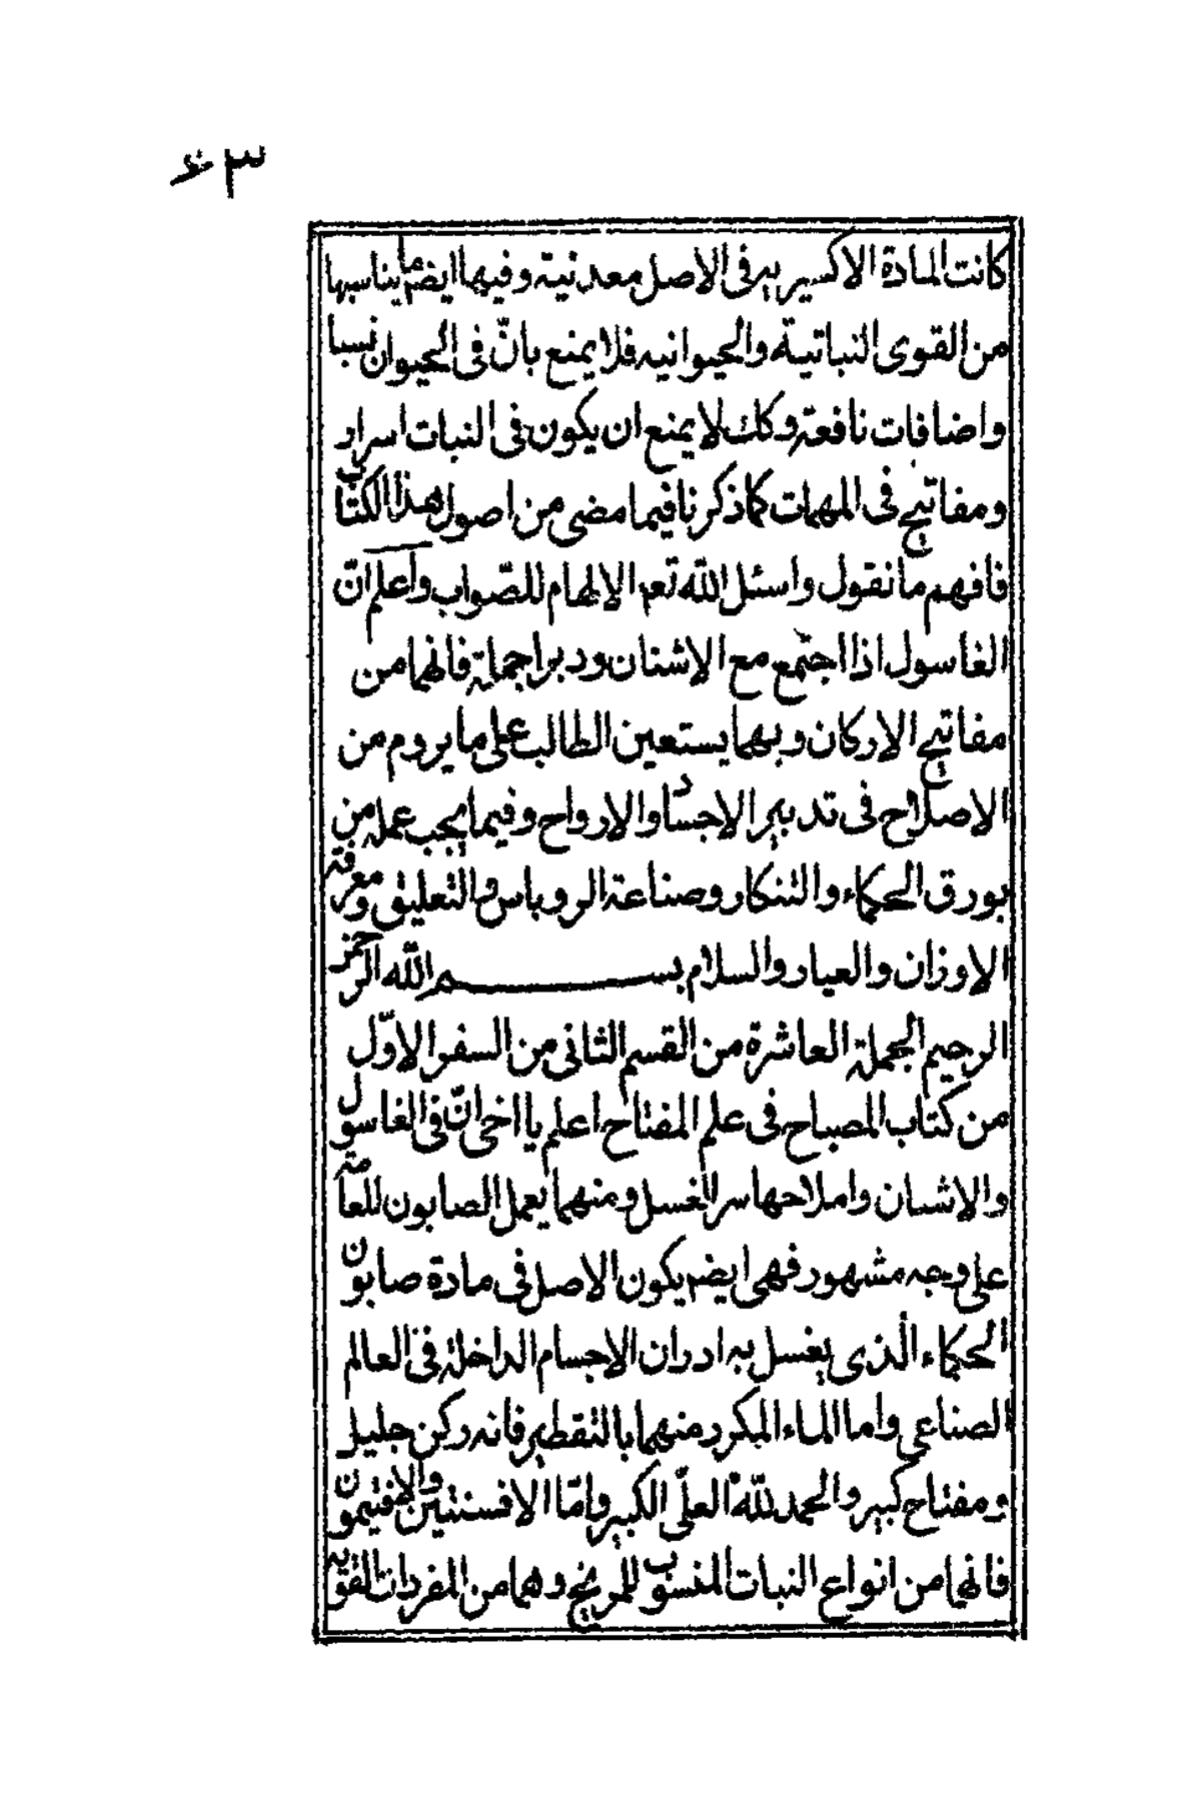 ٤٣
كانت المادة الاكسيريه فى الاصل معدنية وفيها ايضم ما يناسبها
من القوى النباتية والحيوانيه فلا يمنع بانّ فى الحيوان نسبا
واضافات نافعة وكك لا يمنع ان يكون فى النبات اسرار
ومفاتيح فى المهمات كما ذكرنا فيما مضى من اصول هذا الكتاب
فافهم ما نقول واسئل الله تعم الالهام للصّواب واعلم انّ
الغاسول اذا اجتمع مع الاشنان ودبرا جملة فانهما من
مفاتيح الاركان وبهما يستعين الطالب على ما يروم من
الاصلاح فى تدبير الاجساد والارواح وفيما يجب عمله من
بورق الحكماء والتنكار وصناعة الروباس والتعليق ومعرفة
الاوزان والعيار والسلام بسم الله الرحمن
الرحيم الجملة العاشرة من القسم الثانى من السفر الاوّل
من كتاب المصباح فى علم المفتاح اعلم يا اخى انّ فى الغاسول
والاشنان واملاحها سر الغسل ومنهما يعمل الصابون للعامة
على وجه مشهور فهى ايضم يكون الاصل فى مادة صابون
الحكماء الّذى يغسل به ادران الاجسام الداخلة فى العالم
الصناعى واما الماء المكرر منهما بالتقطير فانه ركن جليل
ومفتاح كبير والحمد للّه العلّى الكبير وامّا الافسنتين والافتيمون
فانهما من انواع النبات المنسوب للمريخ وهما من المفردات القوية